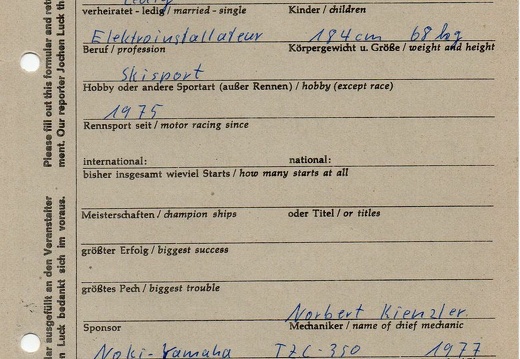 ledig
verheiratet - ledig / married - single Kinder / children
Elektroinstallateur 184cm 68kg
Beruf / profession Körpergewicht u. Größe / weight and height
Skisport
Hobby oder andere Sportart (außer Rennen) / hobby (except race)
1975
Rennsport seit / motor racing since
international: national:
bisher insgesamt wieviel Starts / how many starts at all
Meisterschaften / champion ships oder Titel / or titles
größter Erfolg / biggest success
größtes Pech / biggest trouble
Norbert Kienzler
Sponsor Mechaniker / name of chief mechanic
Noki-Yamaha TZC-350 1977
Please fill out this formular and ret
ment. Our reporter Jochen Luck th
lar ausgefüllt an den Veranstalter
n Luck bedankt sich im voraus.